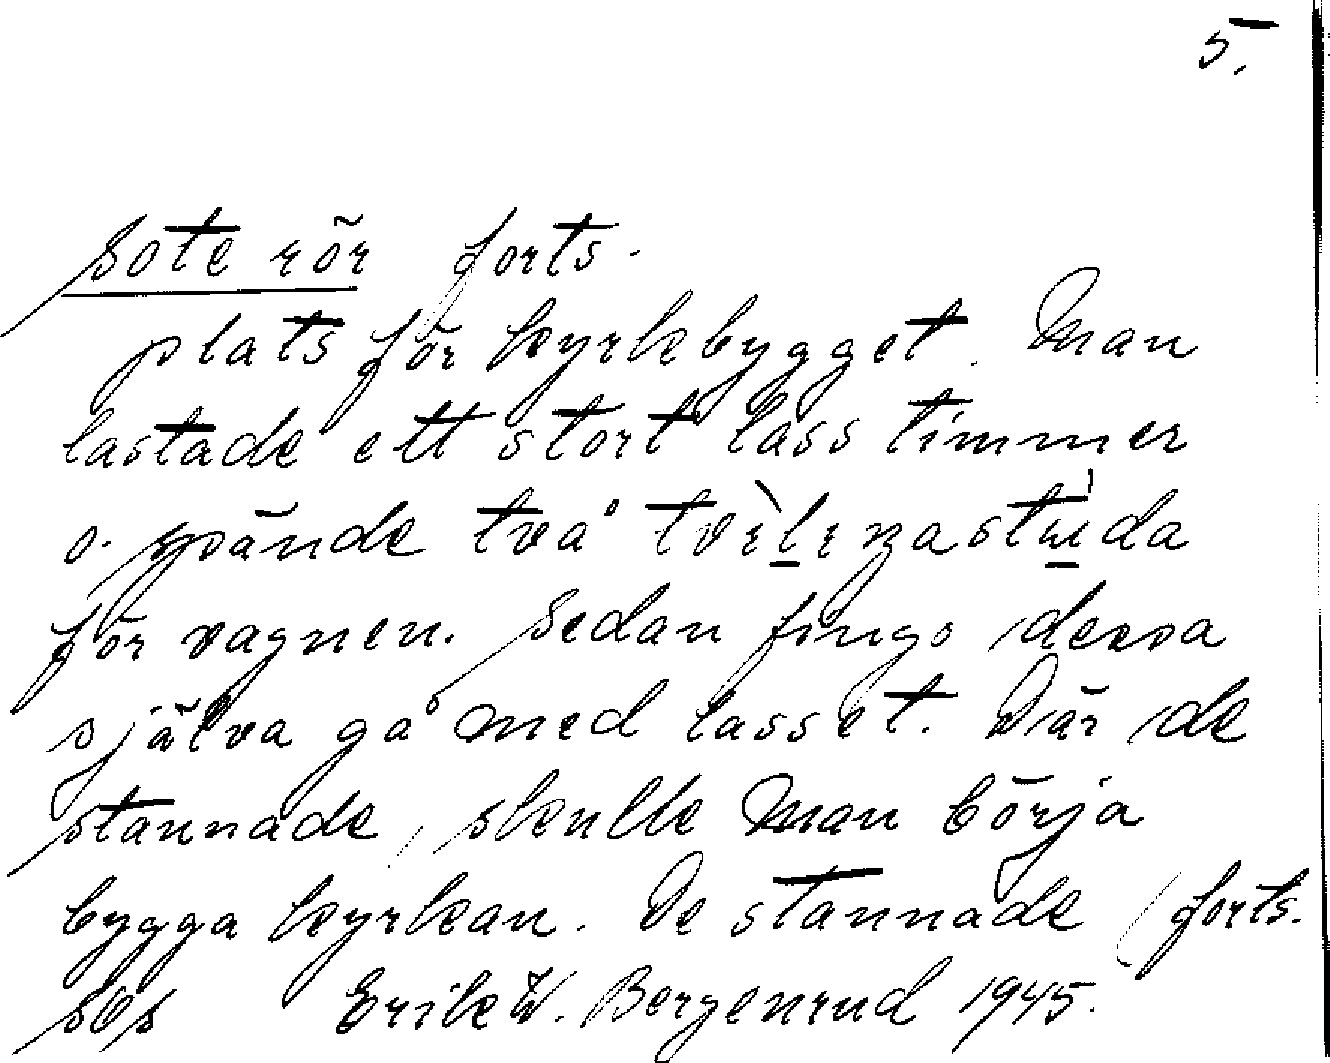 5.
Sote rör forts.
plats för kyrkbygget. Man
lastade ett stort lass timmer
o. spände två
för vagnen. Sedan fingo dessa
själva gå med lasset. Där de
stannade, skulle man börja
bygga kyrkan. De stannade (forts.
Erik W. Bergenrud 1945.